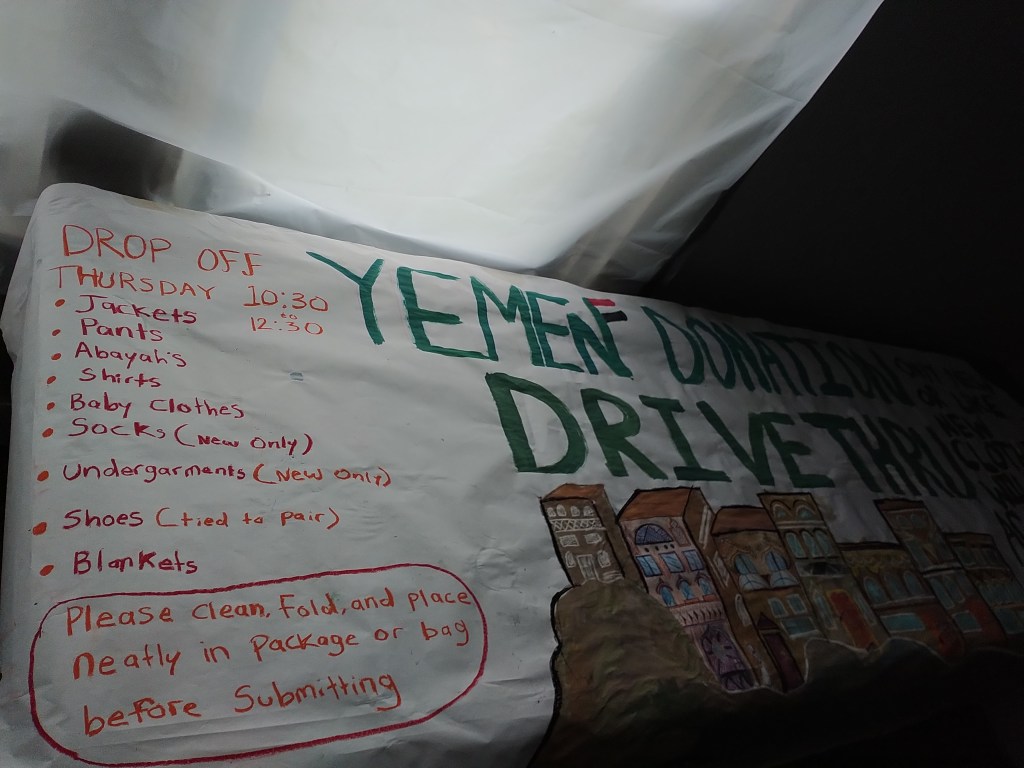 DROP OFF
THURSDAY 10:30
to
12:30
• Jackets
• Pants
• Abayah's
• Shirts
• Baby Clothes
• Socks (New Only)
• Undergarments (New Only)
• Shoes (tied to pair)
• Blankets
Please Clean, Fold, and place
neatly in Package or bag
before Submitting
YEMEN DONATION
DRIVE THRU
OR LIKE
NEW